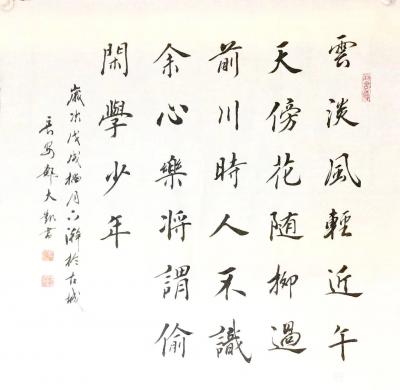 雲淡風輕近午
天傍花随柳過
前川時人不識
余心樂将謂偷
閑學少年
歲次戊戌月下澣於古城
長安大凱書